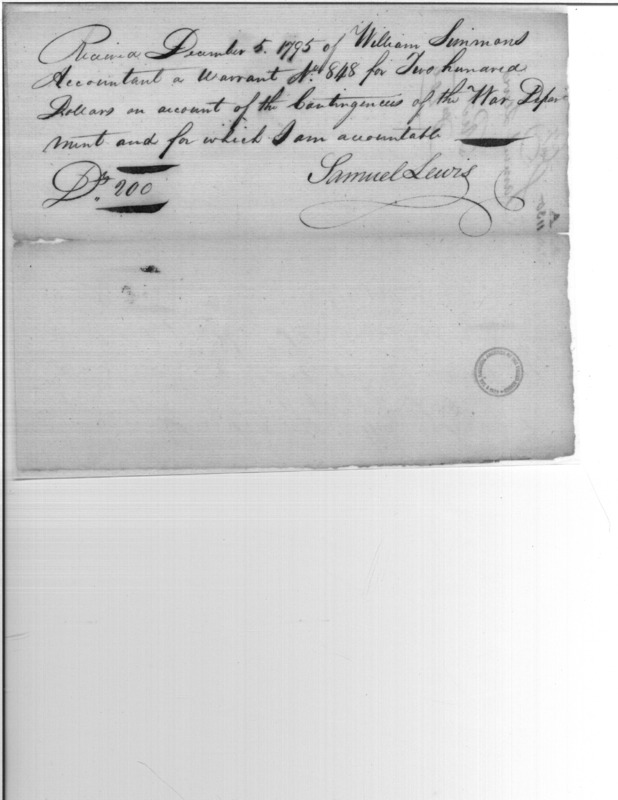 Received December 5. 1795 of William Simmons
Accountant a Warrant No. 848 for Two hundred
Dollars on account of the Contingencies of the War Depart
ment and for which I am accountable
Ds. 200
Samuel Lewis